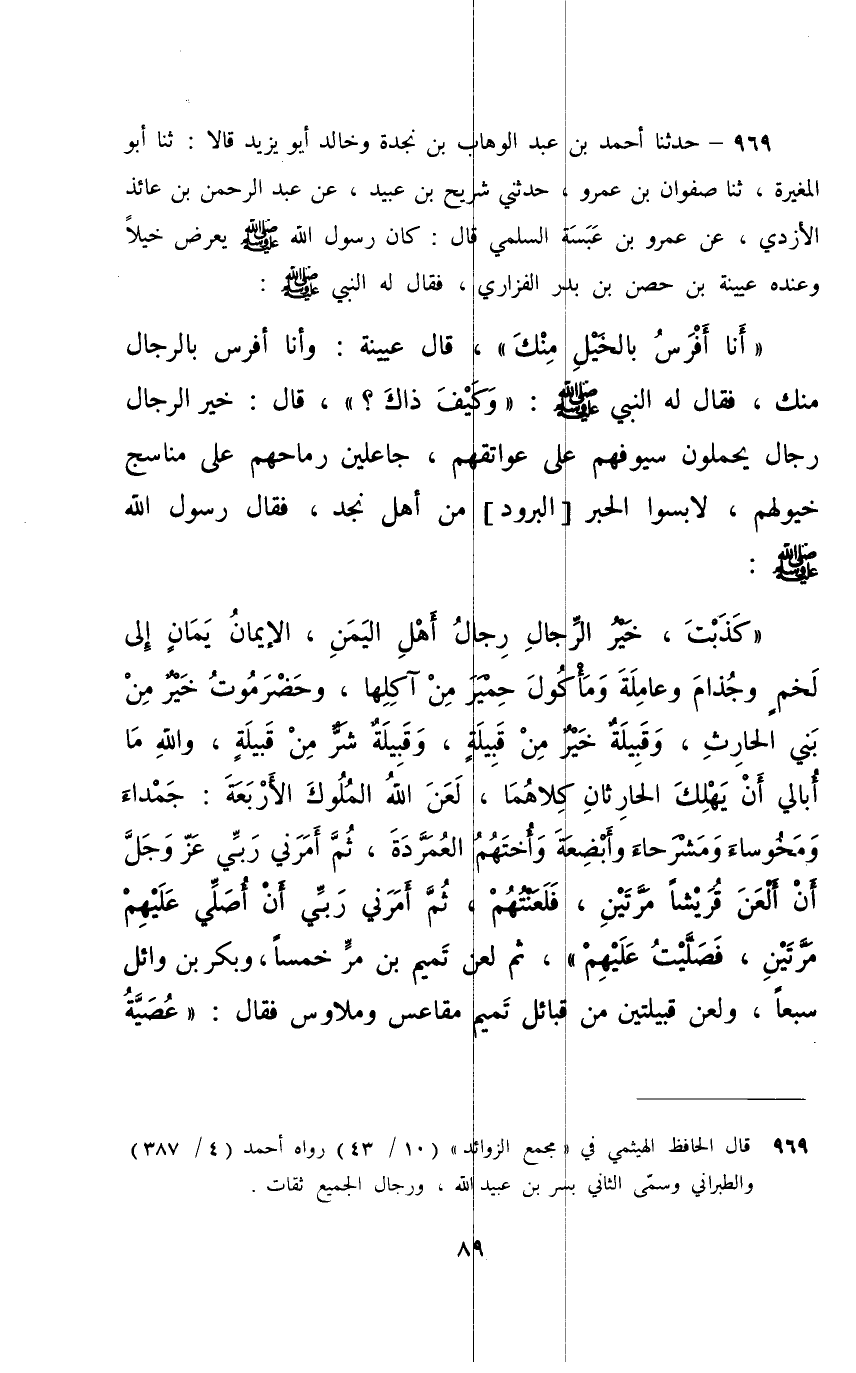 ٩٦٩ – حدثنا أحمد بن عبد الوهاب بن نجدة وخالد أيو يزيد قالا : ثنا أبو
المغيرة ، ثنا صفوان بن عمرو ، حدثني شريح بن عبيد ، عن عبد الرحمن بن عائذ
الأزدي ، عن عمرو بن عَبَسَة السلمي قال : كان رسول الله ﷺ يعرض خيلاً
وعنده عيينة بن حصن بن بدر الفزاري ، فقال له النبي ﷺ :
« أَنا أَفْرَسُ بالخَيْلِ مِنْكَ » ، قال عيينة : وأنا أفرس بالرجال
منك ، فقال له النبي ﷺ : « وَكَيْفَ ذاكَ ؟ » ، قال : خير الرجال
رجال يحملون سيوفهم على عواتقهم ، جاعلين رماحهم على مناسج
خيولهم ، لابسوا الحبر [ البرود ] من أهل نجد ، فقال رسول الله
ﷺ :
« كَذَبْتَ ، خَيْرُ الرِّجالِ رِجالُ أَهْلِ اليَمَنِ ، الإيمانُ يَمَانٍ إِلى
لَخمٍ وجُذامَ وعامِلَةَ وَمَأْكُولَ حِمْيَرَ مِنْ آكِلِها ، وحَضْرَمُوتُ خَيْرٌ مِنْ
بَني الحارِثِ ، وَقَبِيلَةٌ خَيْرٌ مِنْ قَبِيلَةٍ ، وَقَبِيلَةٌ شَرٌّ مِنْ قَبِيلَةٍ ، واللهِ مَا
أُبالي أَنْ يَهْلِكَ الحارِثانِ كِلاهُمَا ، لَعَنَ اللهُ المُلُوكَ الأَرْبَعَةَ : جَمْداءَ
وَمَخُوساءَ وَمَشْرَحاءَ وأَبْضِعَةَ وَأُختَهُمُ العُمَرَّدَةَ ، ثُمَّ أَمَرَني رَبِّي عَزّ وَجَلَّ
أَنْ أَلْعَنَ قُرَيْشاً مَرَّتَيْنِ ، فَلَعَنْتُهُمْ ، ثُمَّ أَمَرَني رَبِّي أَنْ أُصَلِّي عَلَيْهِمْ
مَرَّتَيْنِ ، فَصَلَّيْتُ عَلَيْهِمْ » ، ثم لعن تَميم بن مرٍّ خمساً ، وبكر بن وائل
سبعاً ، ولعن قبيلتين من قبائل تَميم مقاعس وملاوس فقال : « عُصَيَّةُ
٩٦٩ قال الحافظ الهيثمي في « مجمع الزوائد » ( ١٠ / ٤٣ ) رواه أحمد ( ٤ / ٣٨٧ )
والطبراني وسمّى الثاني بسر بن عبيد الله ، ورجال الجميع ثقات .
٨٩